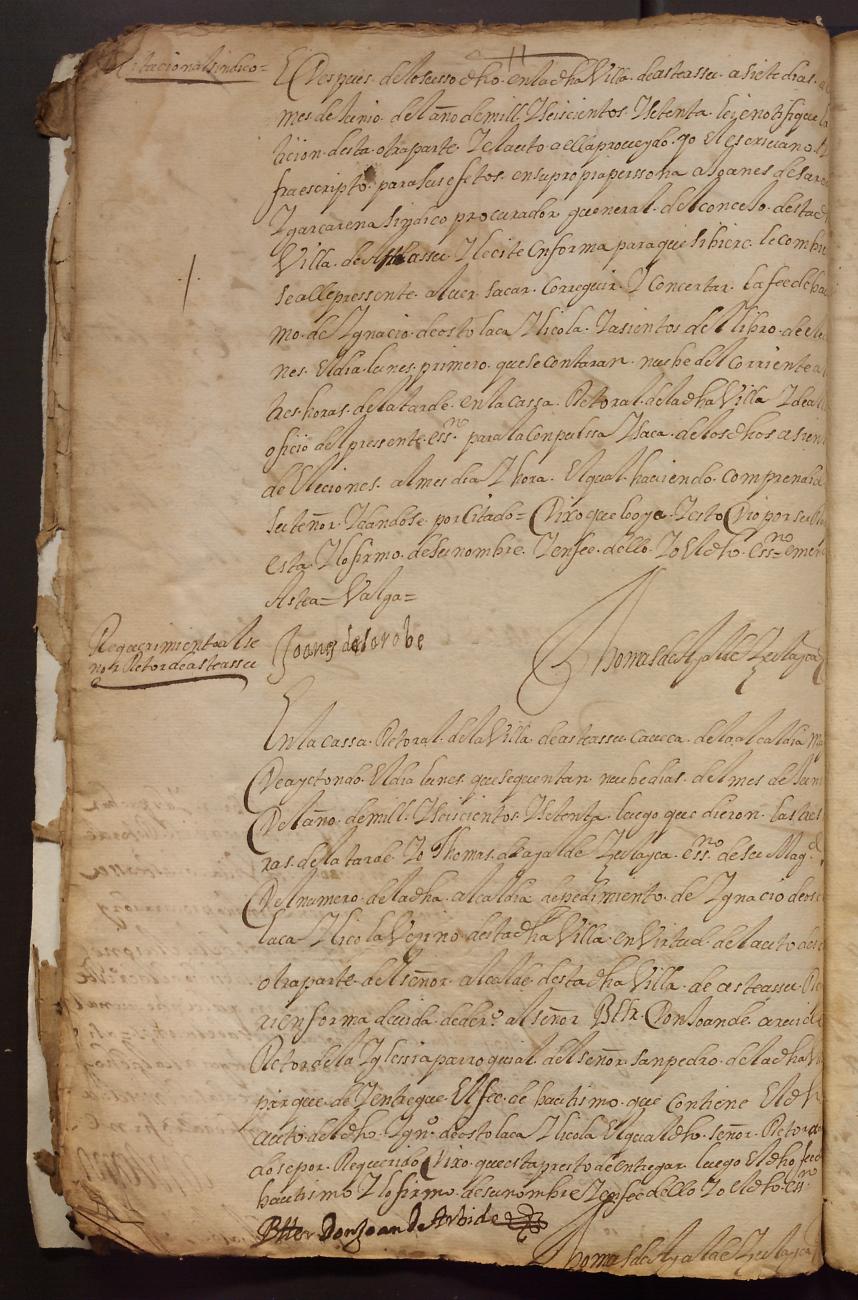 Citacion al sindico=
E Despues de lo susso dho en la dha Villa de asteassu a siete dias
mes de Junio del año de mill Y seiscientos Y setenta ley e notifique la
ticion desta otra parte Y el auto a ella proueydo yo el escriuano
fraescripto para sus efetos en su propia perssona a Joanes de Saro
Ygarcarena sindico procurador general del concejo desta dha
Villa de asteassu Y le cite en forma para que si biere le combi
se alle pressente a l uer sacar correguir Y concertar la fee de bau
mo de Ygnacio de ostolaca Ylicola Y asientos del libro de ele
nes el dia lunes primero que se contaran nuebe del corriente a
tres horas de la tarde en la cassa Retoral de la dha Villa Y de al
oficio del pressente essno para la conpulssa Y saca de los dhos asien
de Eleciones al mes dia Y hora El qual haciendo comprendid
su tenor Y dandose por citado= Dixo que lo oye Y esto Dio por su
esta Y lo firmo de su nombre Y en fee dello Yo el dho essno= emen
Astea= Valga=
Joanes de Sarobe
Thomas de Ayalde Zulayca
Requerimiento al se
nor Retor de asteassu
En la cassa Retoral de la Villa de asteassu caueca de la alcaldia
De aytondo El dia lunes que se quentan nuebe dias del mes de Juni
Del año de mill Y seiscientos Y setenta luego que dieron las tres
ras de la tarde Yo Thomas de ayalde Zulayca essno de su Magd
Del numero de la dha alcaldia de pedimiento de Ygnacio de os
laca Ylicola Vezino desta dha Villa en Virtud del auto des
otra parte del señor alcalde desta dha Villa de asteassu Re
ri en forma deuida de dero al señor Bller Don Joan de aruid
Retor de la Yglessia parroquial del señor san pedro de la dha
par que de Y entregue El fee de bautismo que contiene El dh
auto del dho Ygno de ostolaca Ylicola El qual dho señor Retor
dose por Requerido Dixo que esta presto de entregar luego El dho fee
bautismo Y lo firmo de su nombre Y en fee dello Yo el dho essno
Bller Don Joan de Arbide
Thomas de Ayalde Zulayca